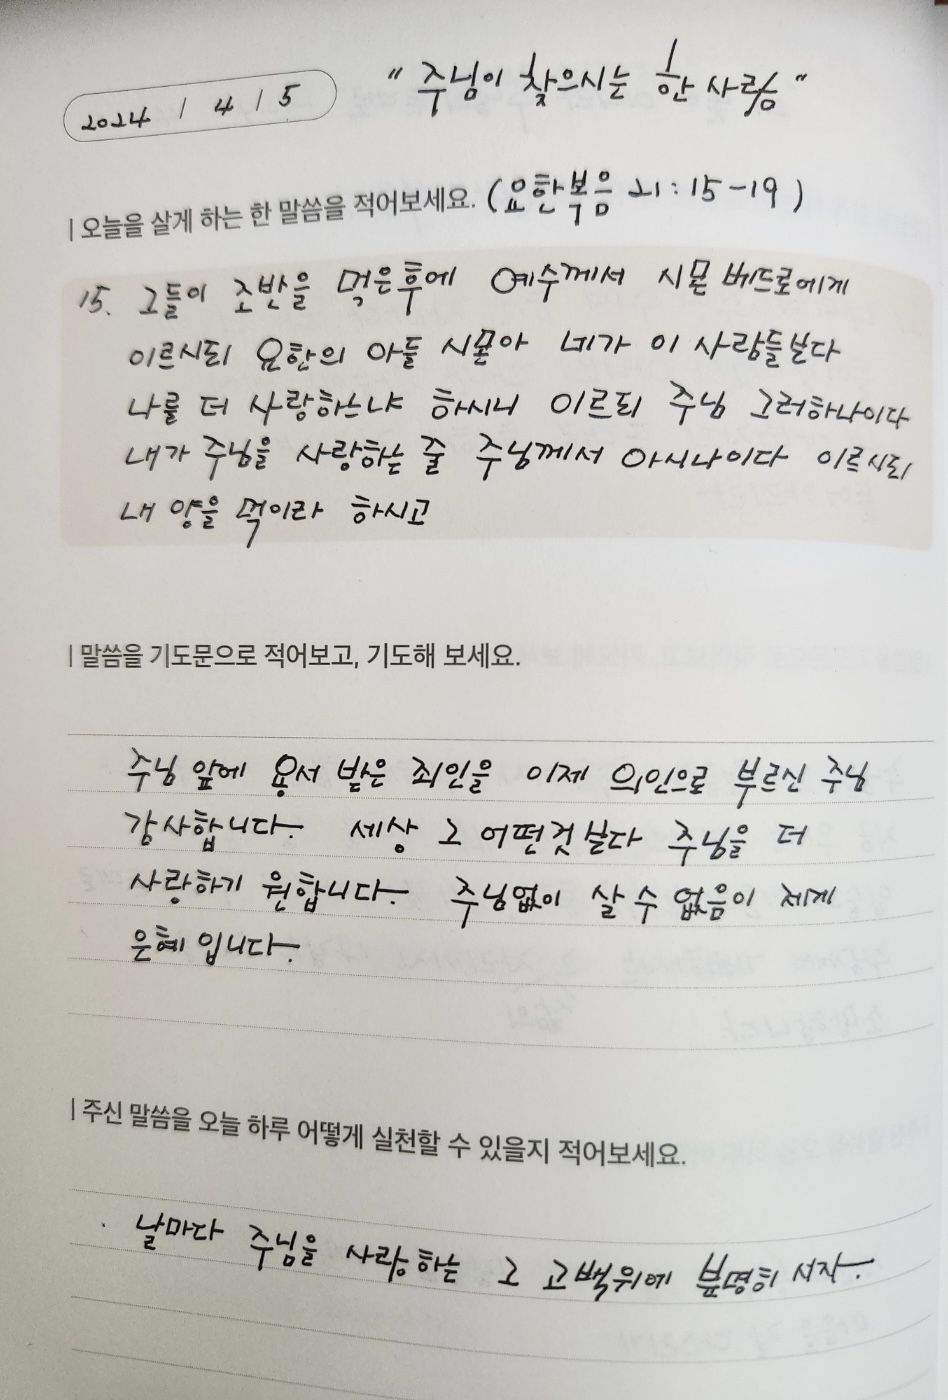 2024 / 4 / 5
"주님이 찾으시는 한 사람"
| 오늘을 살게 하는 한 말씀을 적어보세요. (요한복음 21:15-19)
15. 그들이 조반을 먹은후에 예수께서 시몬 베드로에게
이르시되 요한의 아들 시몬아 네가 이 사람들보다
나를 더 사랑하느냐 하시니 이르되 주님 그러하나이다
내가 주님을 사랑하는 줄 주님께서 아시나이다 이르시되
내 양을 먹이라 하시고
| 말씀을 기도문으로 적어보고, 기도해 보세요.
주님 앞에 용서 받은 죄인을 이제 의인으로 부르신 주님
감사합니다. 세상 그 어떤것보다 주님을 더
사랑하기 원합니다. 주님없이 살 수 없음이 제게
은혜 입니다.
| 주신 말씀을 오늘 하루 어떻게 실천할 수 있을지 적어보세요.
· 날마다 주님을 사랑하는 그 고백위에 분명히 서자.